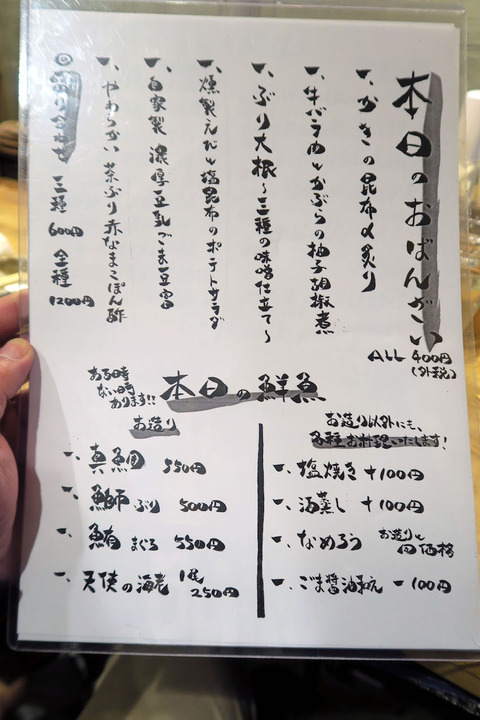 本日のおばんざい
ALL 400円
(外税)
一、かきの昆布〆炙り
一、牛バラ肉とかぶらの柚子胡椒煮
一、ぶり大根〜三種の味噌仕立て〜
一、燻製えびと塩昆布のポテトサラダ
一、自家製 濃厚豆乳ごま豆富
一、やわらかい茶ぶり赤なまこぽん酢
◎盛り合わせ 三種 600円 全種 1200円
ある日時
ない時
あります!!
本日の鮮魚
お造り
一、真鯛 550円
一、鰤 ぶり 500円
一、鮪 まぐろ 550円
一、天使の海老 1尾 250円
お造り以外にも、
各種お料理いたします!
一、塩焼き +100円
一、酒蒸し +100円
一、なめろう お造りと同価格
一、ごま醤油和え -100円